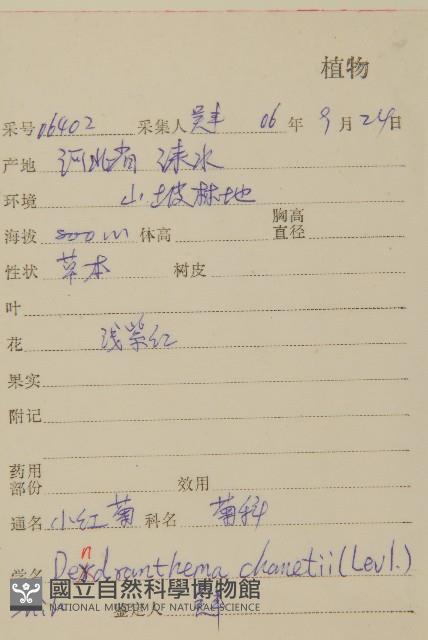 植物
采号 06402 采集人 吴丰 06 年 9 月 24 日
产地 河北省 涞水
环境 山坡林地
胸高
海拔 800 m 体高 直径
性状 草本 树皮
叶
花 浅紫红
果实
附记
药用
部份 效用
通名 小红菊 科名 菊科
学名 Dendranthema chanetii (Levl.)
鉴定人
國立自然科學博物館
NATIONAL MUSEUM OF NATURAL SCIENCE